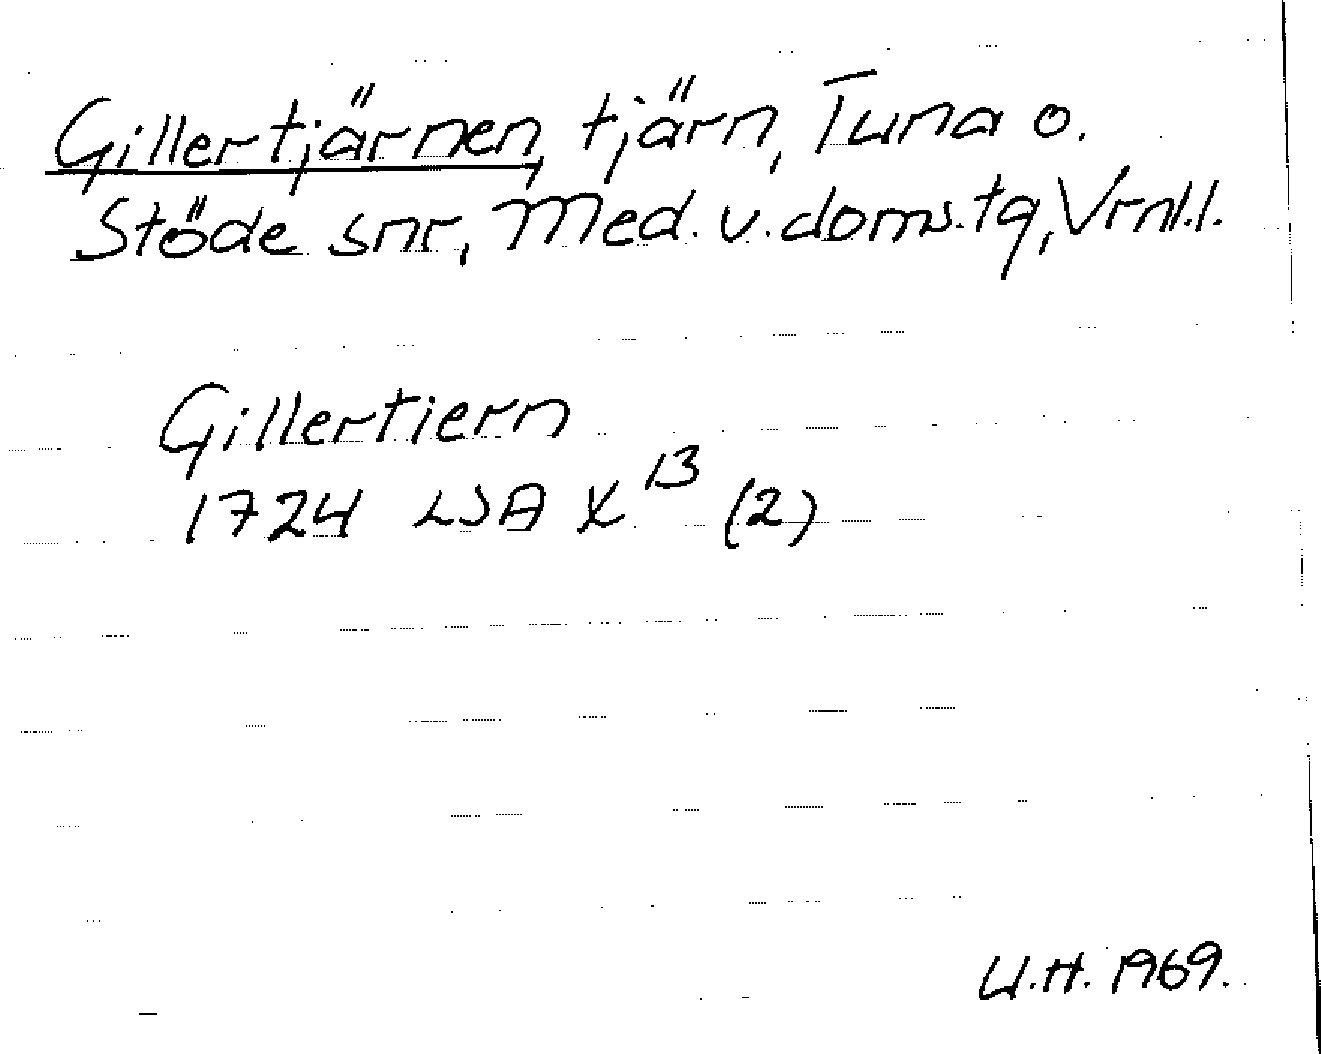 Gillertjärnen, tjärn, Tuna o.
Stöde snr, Med. v. doms.tg, Vrnl.l.
Gillertiern
1724 LSA X¹³ (2)
U.H. 1969.